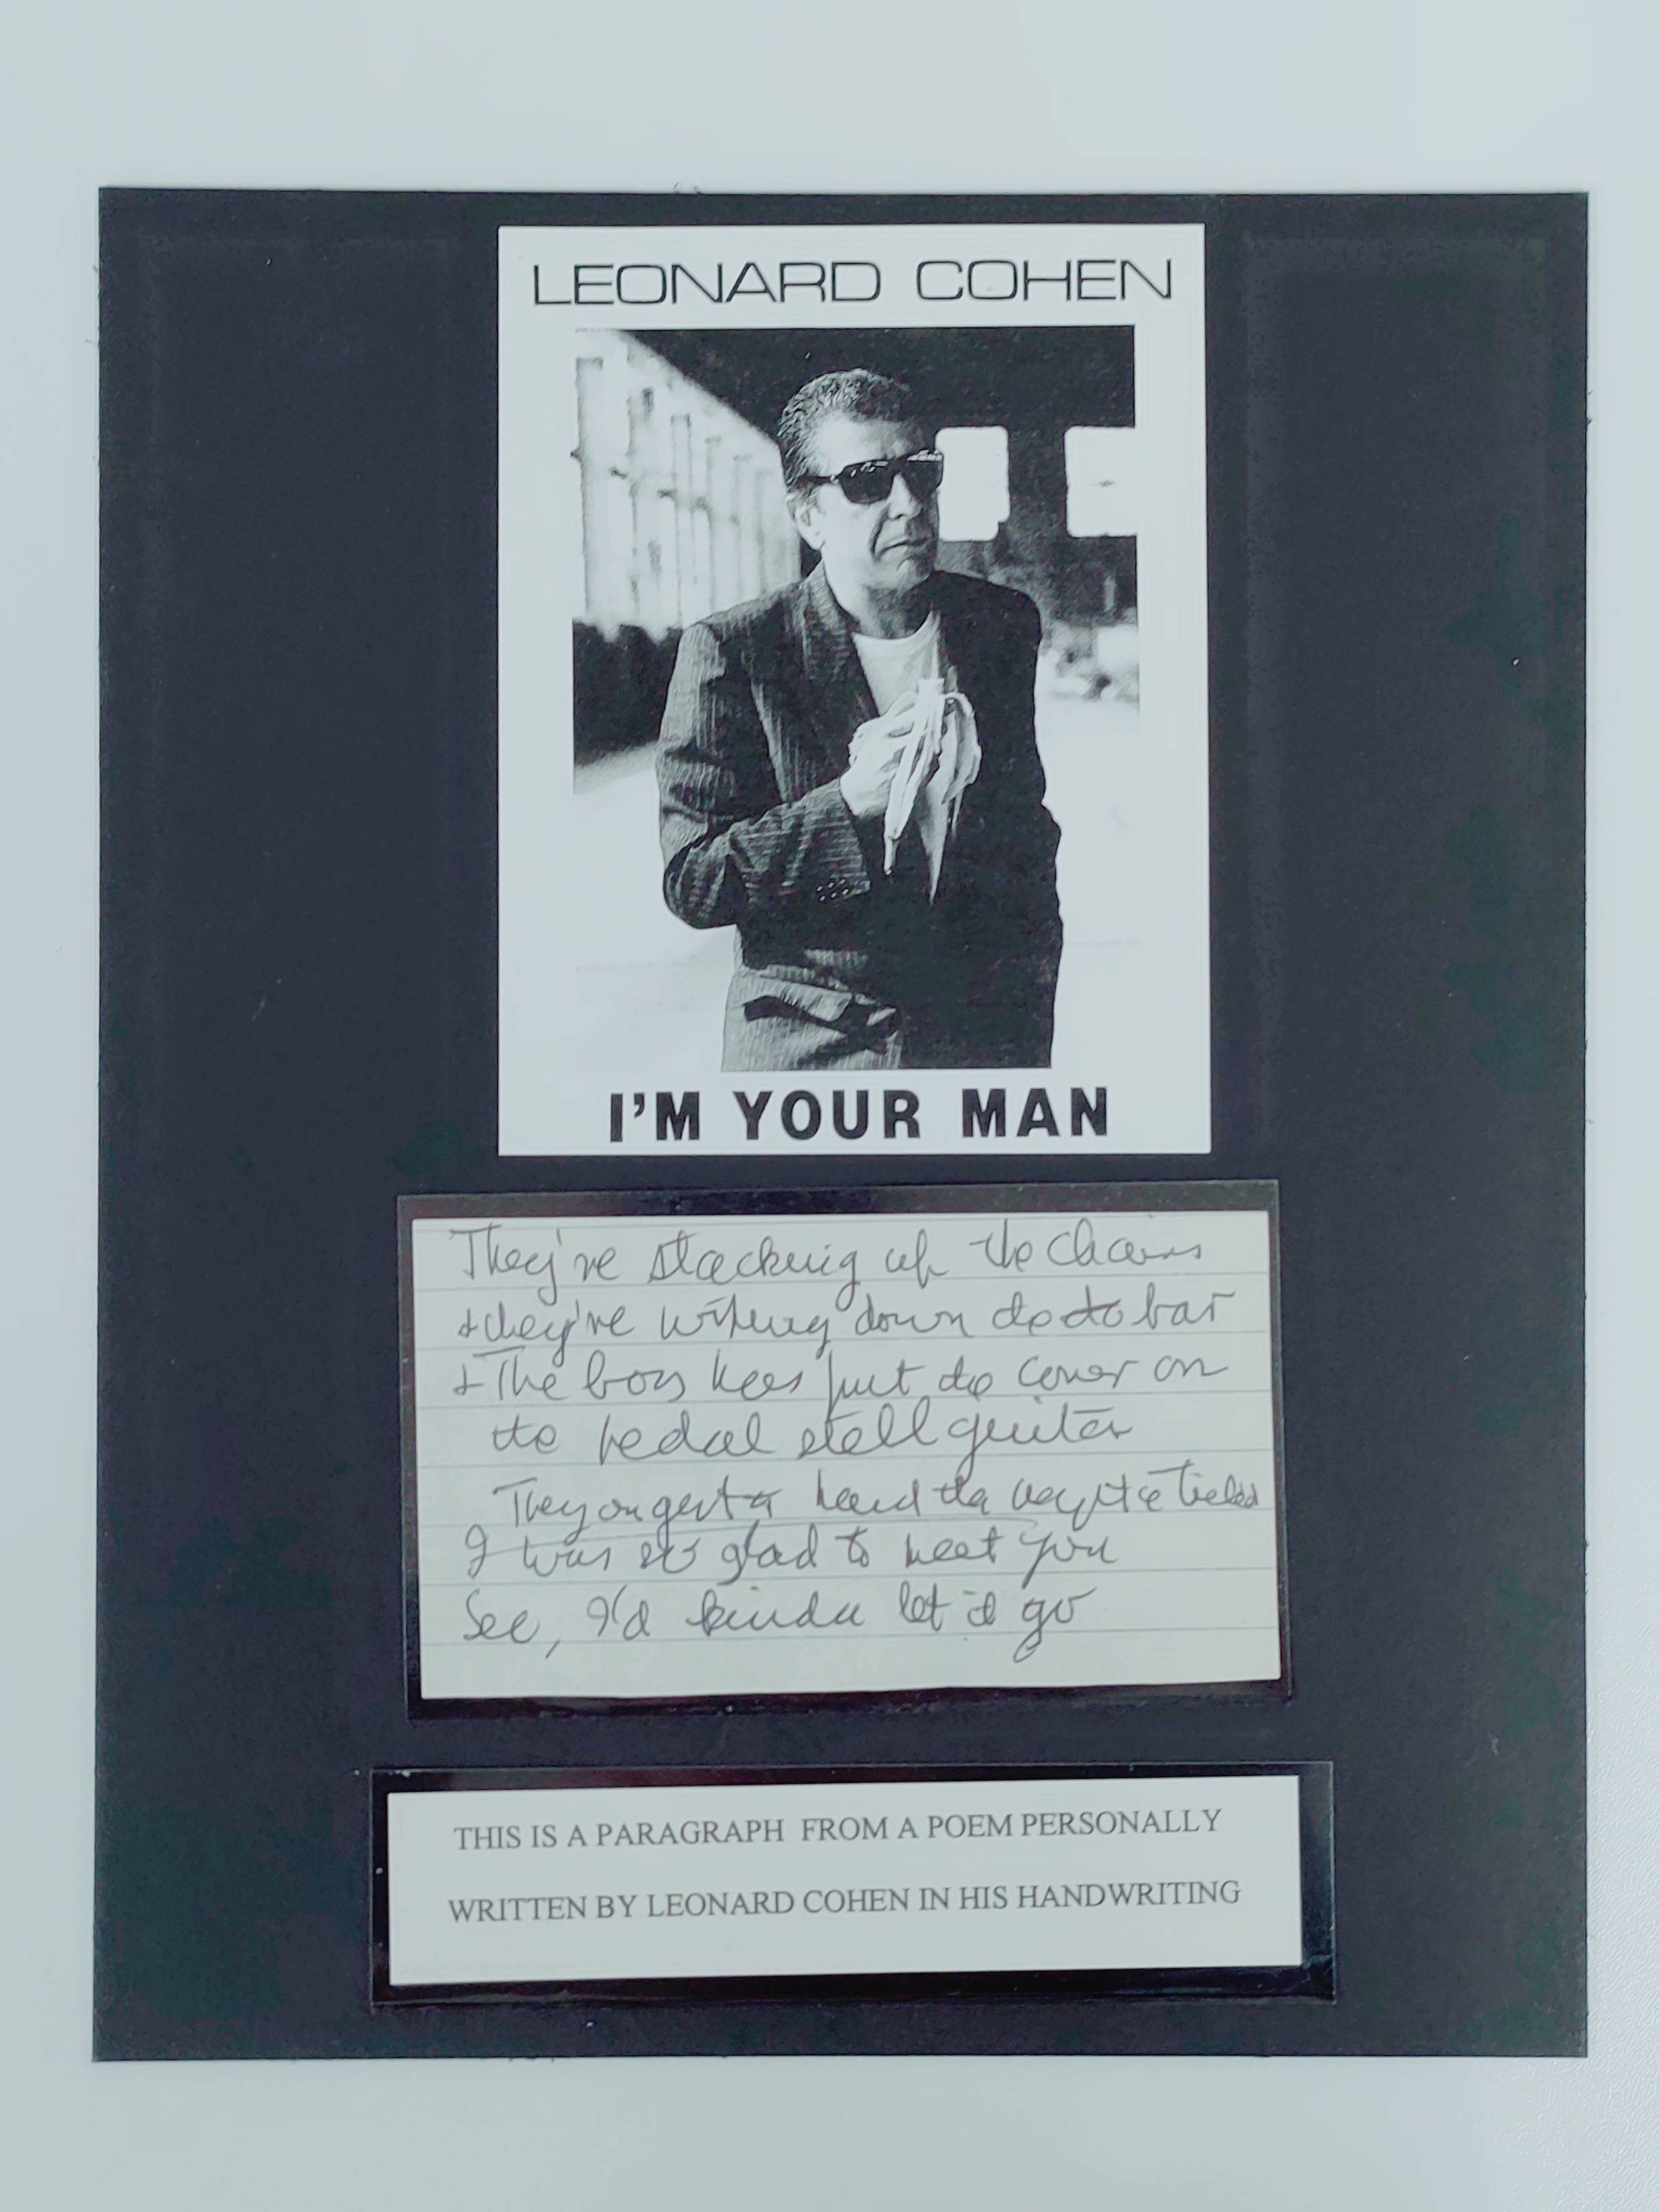 LEONARD COHEN
I'M YOUR MAN
They're stacking up the chairs
& they're wiping down the bar
& The boys have put the cover on
the pedal stell guitar
They
I was so glad to meet you
See, I'd kinda let it go
THIS IS A PARAGRAPH FROM A POEM PERSONALLY
WRITTEN BY LEONARD COHEN IN HIS HANDWRITING